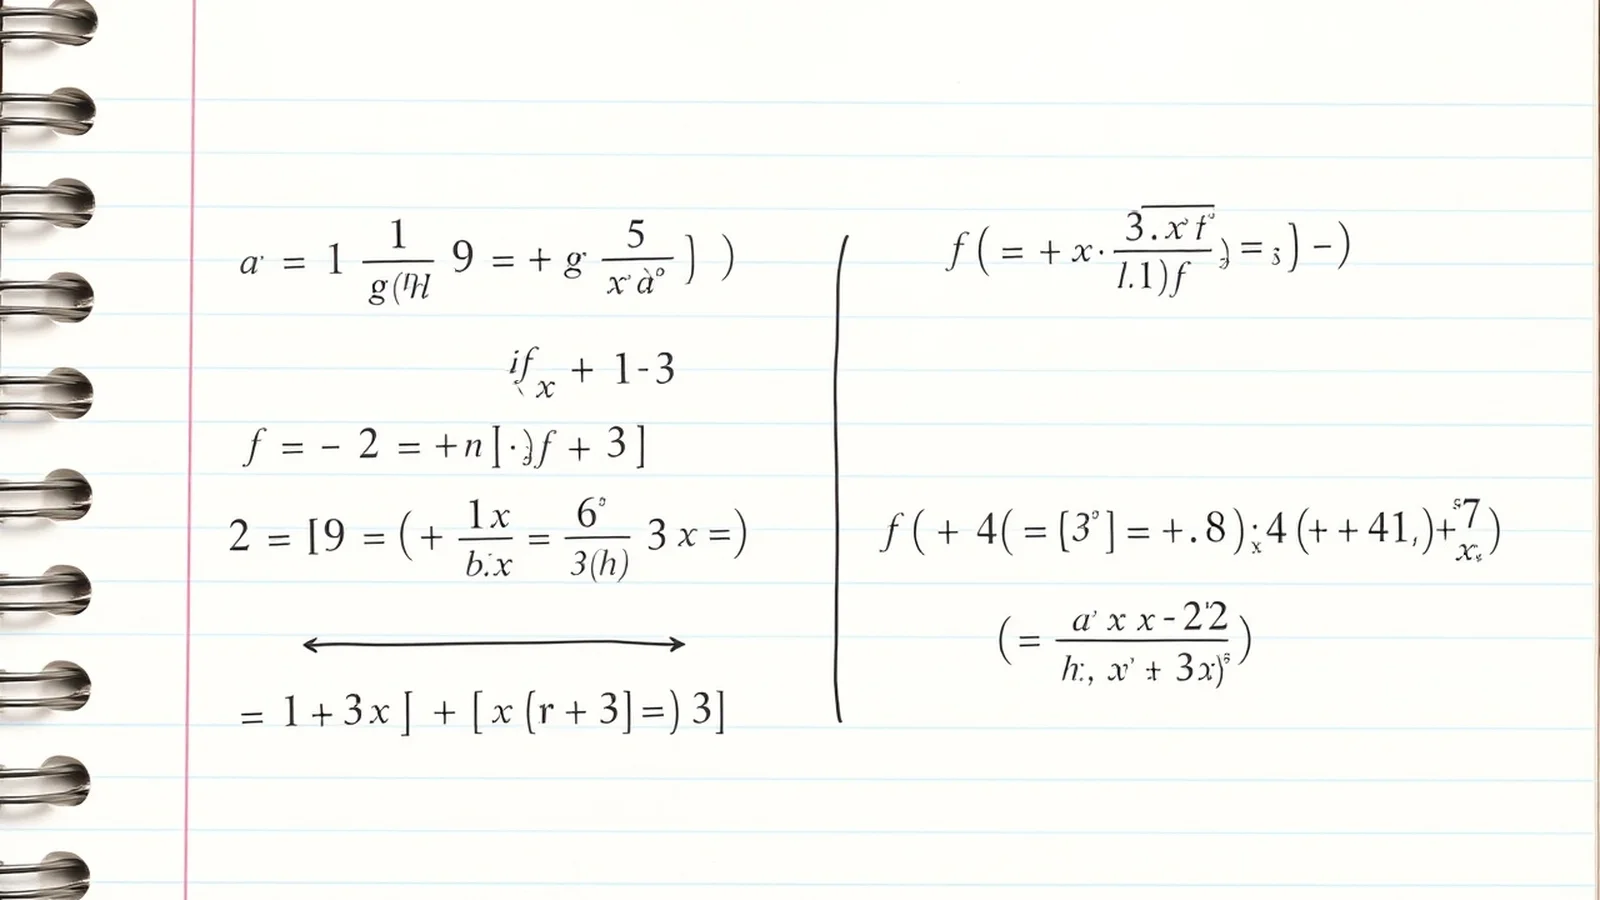 a = 1 1/g( 9 = + g 5/x à° ] )
if x + 1-3
f = - 2 = +n[·)f + 3]
2 = [9 = (+ 1x/b:x = 6°/3(h) 3x =)
= 1+3x] + [x(r+3]=)3]
f( = + x· 3.x f/l.1)f = 3] -)
f( + 4( = [3°] = +.8): x 4(++41,)+ 7/x
(= a' x x-2'2/h:, x' + 3x))